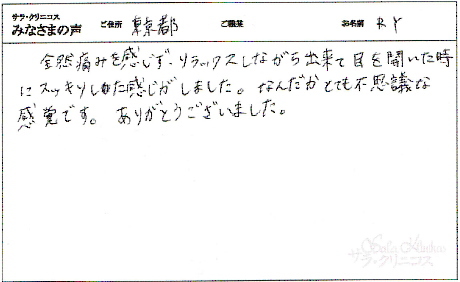 サラ・クリニコス
みなさまの声 ご住所 東京都 ご職業 お名前 R Y
全然痛みを感じず、リラックスしながら出来て目を開いた時
にスッキリした感じがしました。なんだかとても不思議な
感覚です。ありがとうございました。
サラ・クリニコス